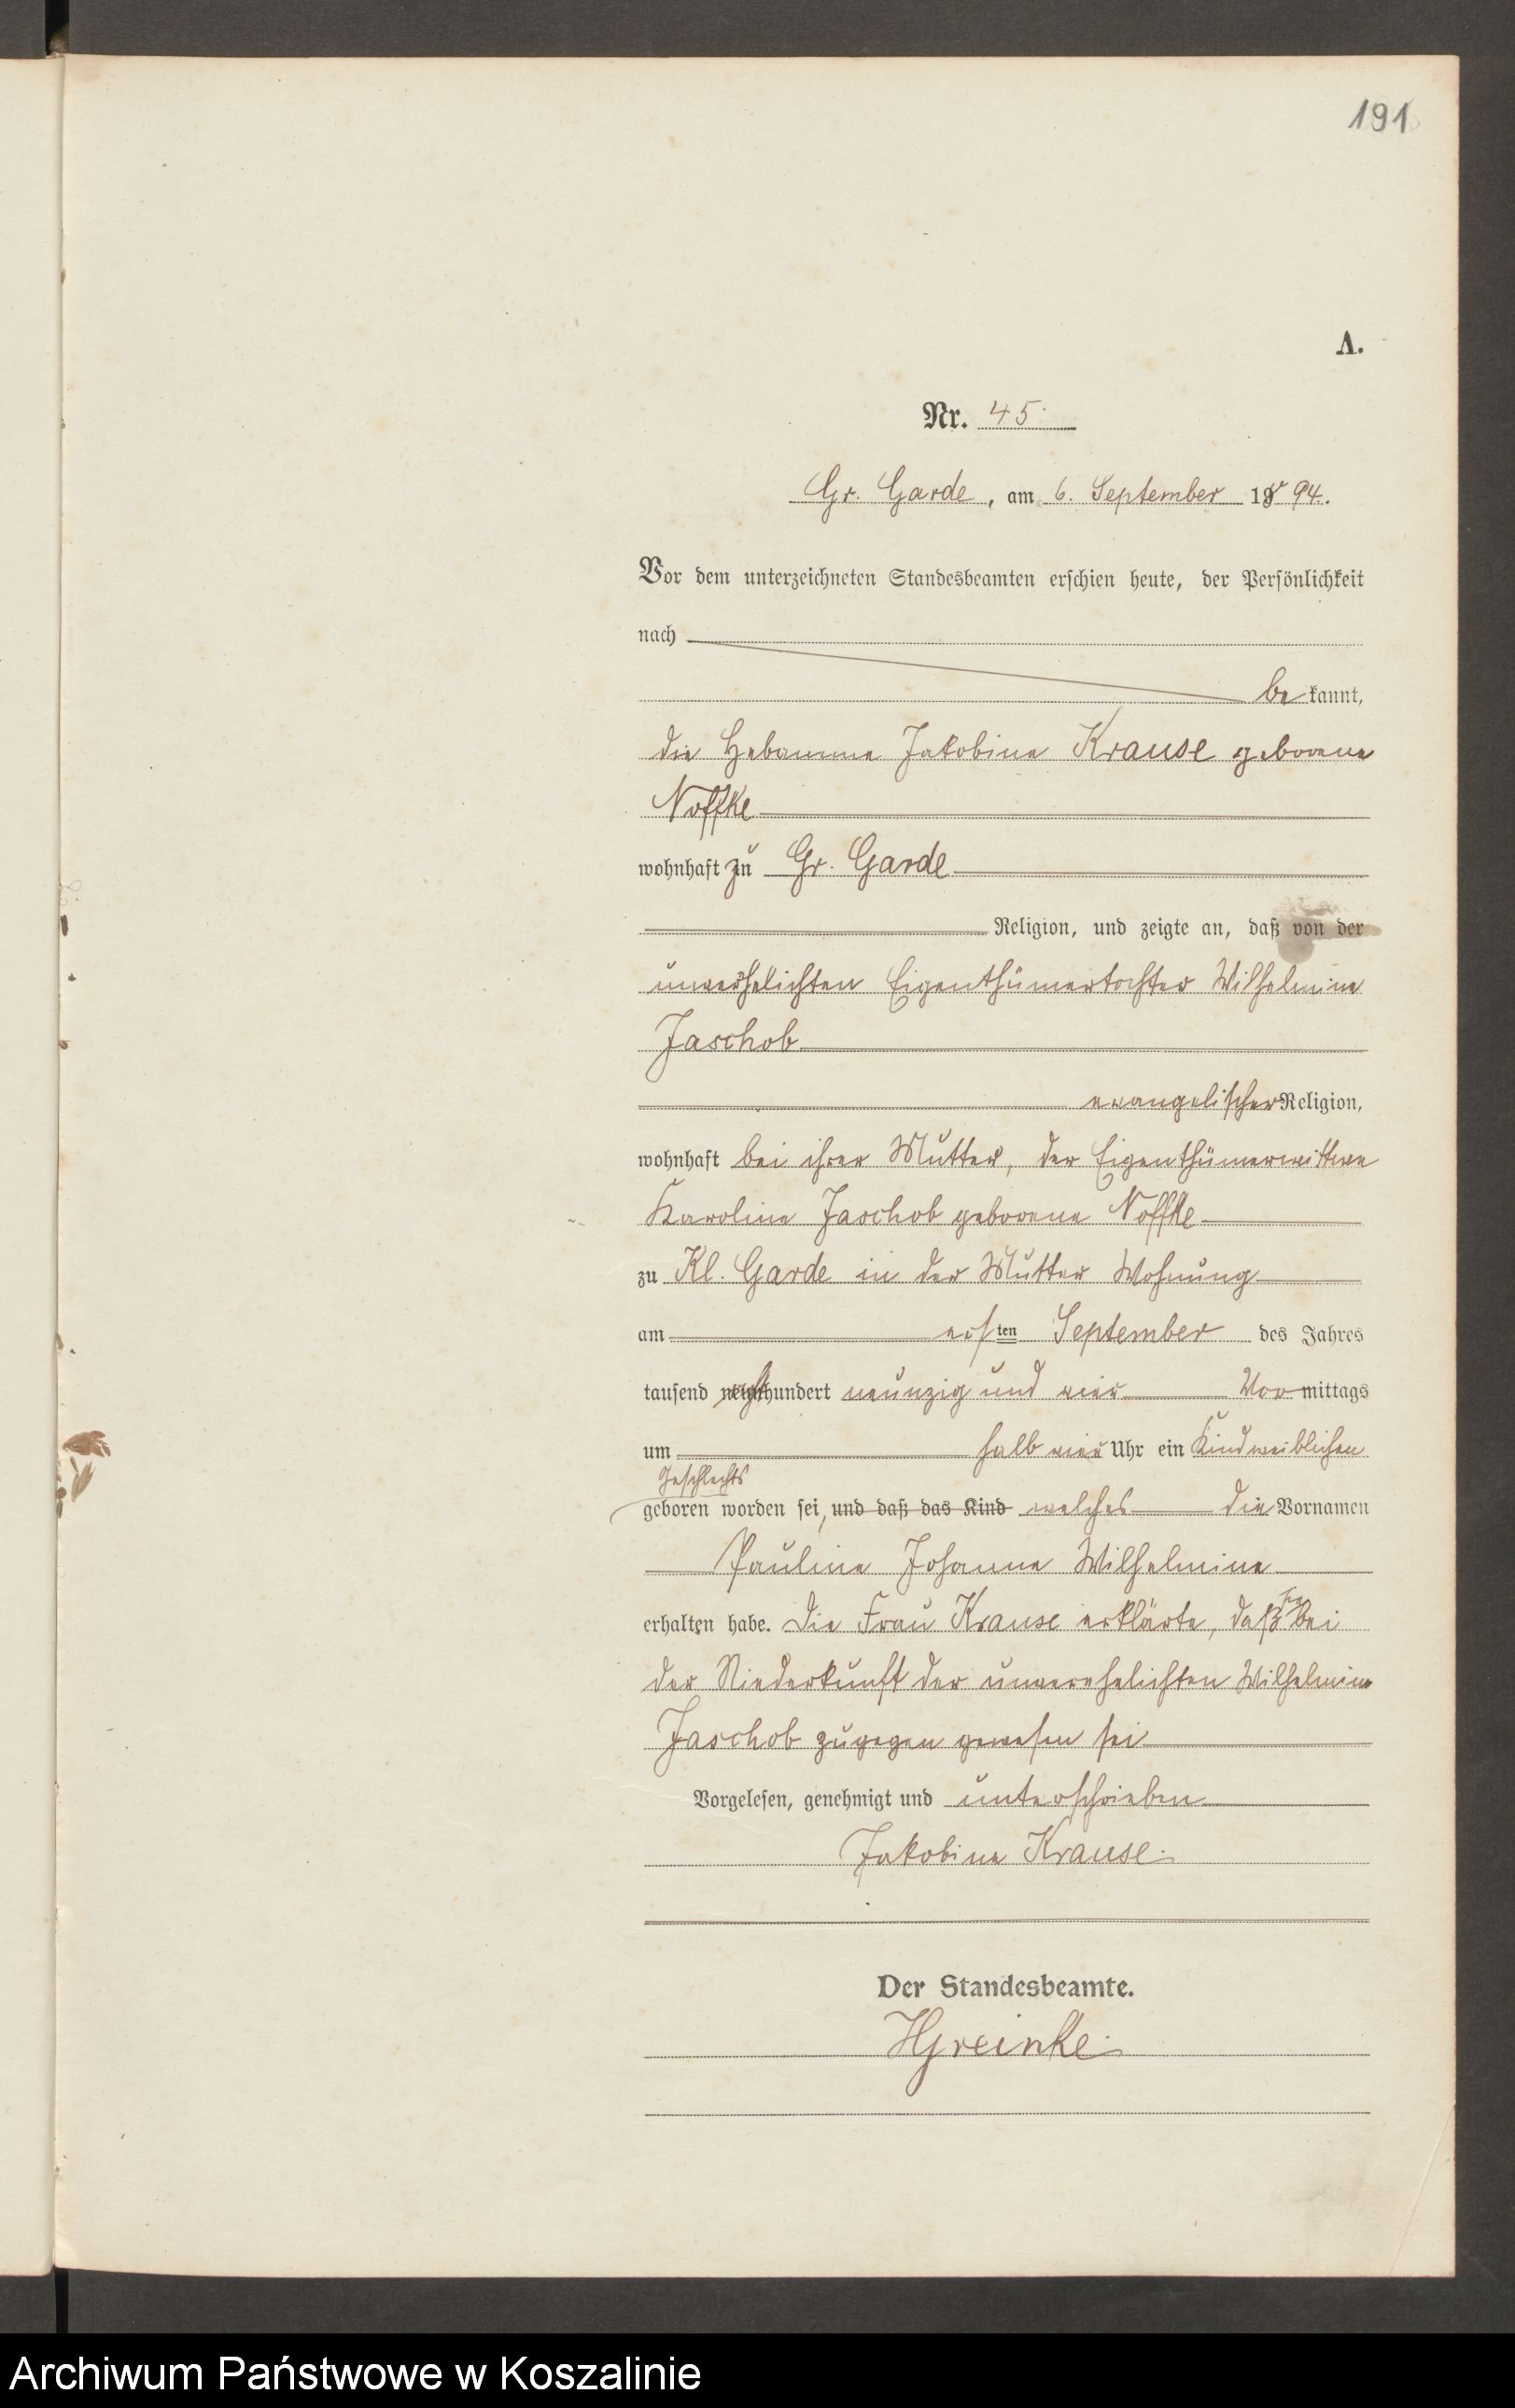 191
A.
Nr. 45.
Gr. Garde, am 6. September 1894.
Vor dem unterzeichneten Standesbeamten erschien heute, der Persönlichkeit
nach
bekannt,
die Hebamme Jakobine Krause geborene
Noffke
wohnhaft zu Gr. Garde
Religion, und zeigte an, daß von der
unverehelichten Eigenthümertochter Wilhelmine
Jaschob
evangelischer Religion,
wohnhaft bei ihrer Mutter, der Eigenthümerwittwe
Karoline Jaschob geborene Noffke
zu Kl. Garde in der Mutter Wohnung
am ersten September des Jahres
tausend achthundert neunzig und vier Vormittags
um halb vier Uhr ein Kind weiblichen
Geschlechts
geboren worden sei, und daß das Kind welches die Vornamen
Pauline Johanne Wilhelmine
erhalten habe. Die Frau Krause erklärte, daß sie bei
der Niederkunft der unverehelichten Wilhelmine
Jaschob zugegen gewesen sei
Vorgelesen, genehmigt und unterschrieben
Jakobine Krause.
Der Standesbeamte.
HGreinke.
Archiwum Państwowe w Koszalinie